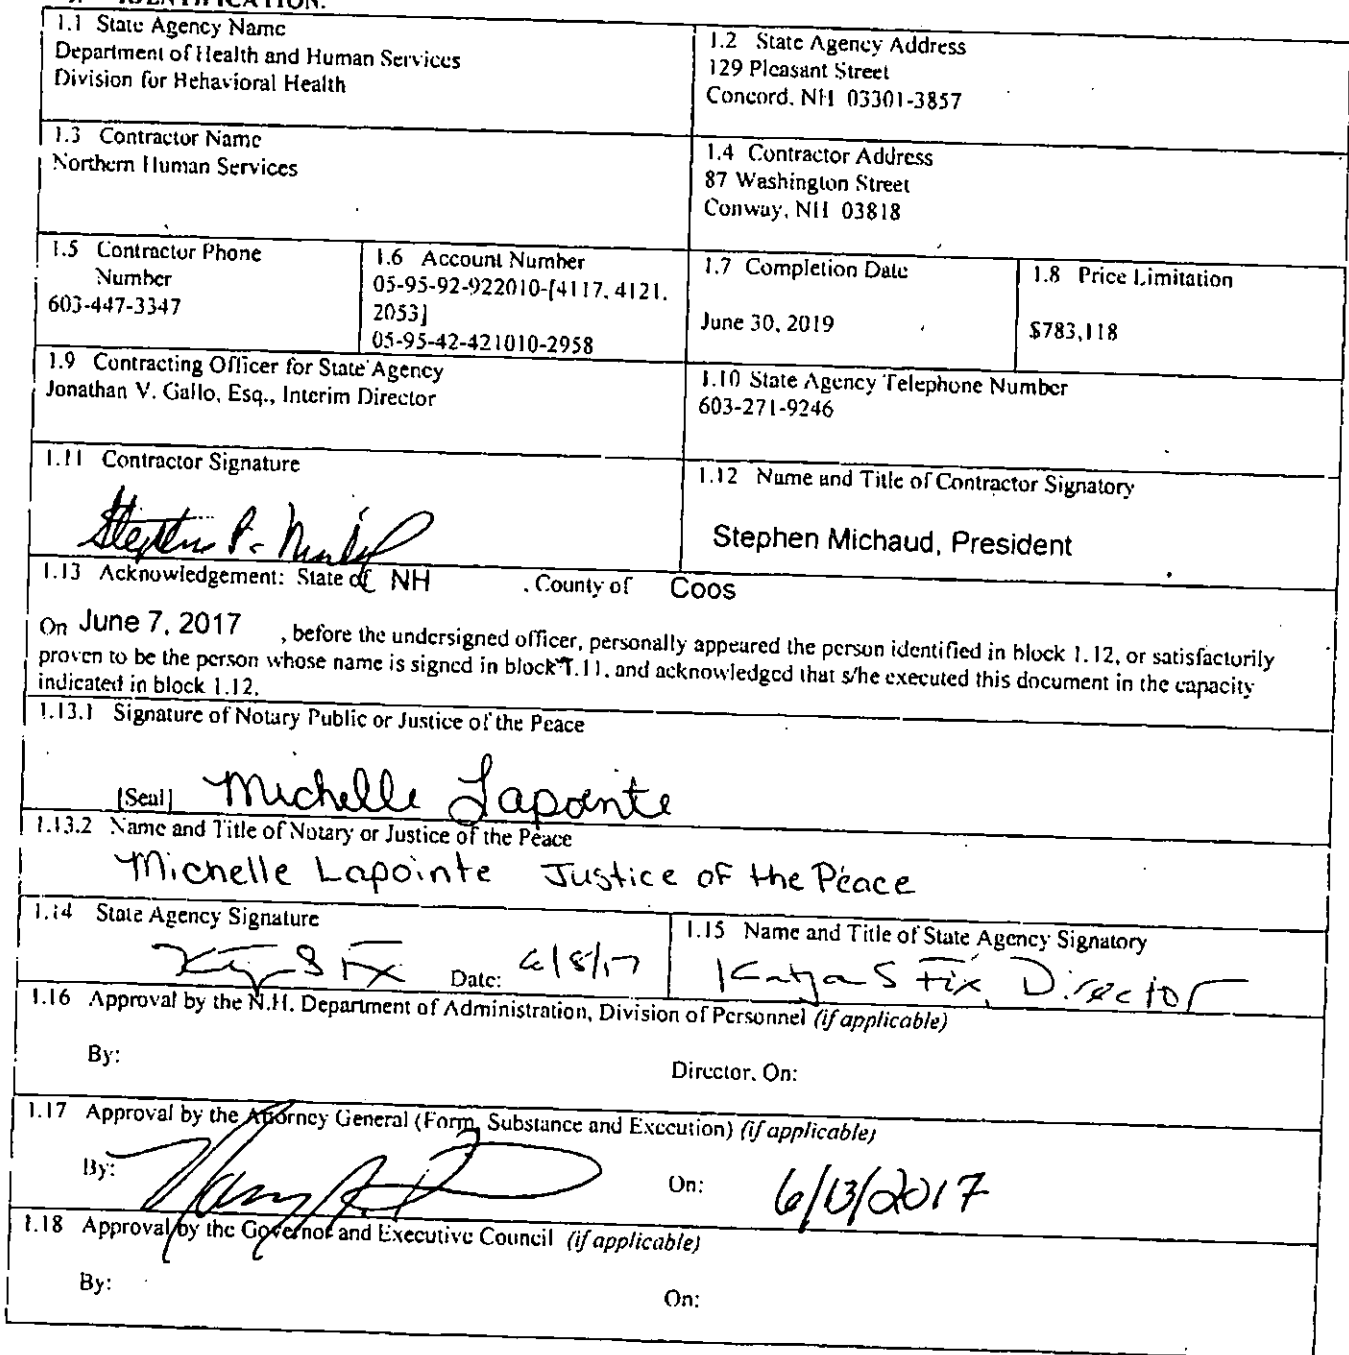 IDENTIFICATION.
1.1 State Agency Name
Department of Health and Human Services
Division for Behavioral Health
1.2 State Agency Address
129 Pleasant Street
Concord, NH 03301-3857
1.3 Contractor Name
Northern Human Services
1.4 Contractor Address
87 Washington Street
Conway, NH 03818
1.5 Contractor Phone
Number
603-447-3347
1.6 Account Number
05-95-92-922010-[4117, 4121,
2053]
05-95-42-421010-2958
1.7 Completion Date
June 30, 2019
1.8 Price Limitation
$783,118
1.9 Contracting Officer for State Agency
Jonathan V. Gallo, Esq., Interim Director
1.10 State Agency Telephone Number
603-271-9246
1.11 Contractor Signature
Stephen P.
1.12 Name and Title of Contractor Signatory
Stephen Michaud, President
1.13 Acknowledgement: State of NH , County of Coos
On June 7, 2017 , before the undersigned officer, personally appeared the person identified in block 1.12, or satisfactorily
proven to be the person whose name is signed in block 1.11, and acknowledged that s/he executed this document in the capacity
indicated in block 1.12.
1.13.1 Signature of Notary Public or Justice of the Peace
[Seal] Michelle Lapointe
1.13.2 Name and Title of Notary or Justice of the Peace
Michelle Lapointe Justice of the Peace
1.14 State Agency Signature
Date: 6/8/17
1.15 Name and Title of State Agency Signatory
Katja S Fix, Director
1.16 Approval by the N.H. Department of Administration, Division of Personnel (if applicable)
By: Director, On:
1.17 Approval by the Attorney General (Form, Substance and Execution) (if applicable)
By: On: 6/13/2017
1.18 Approval by the Governor and Executive Council (if applicable)
By: On: